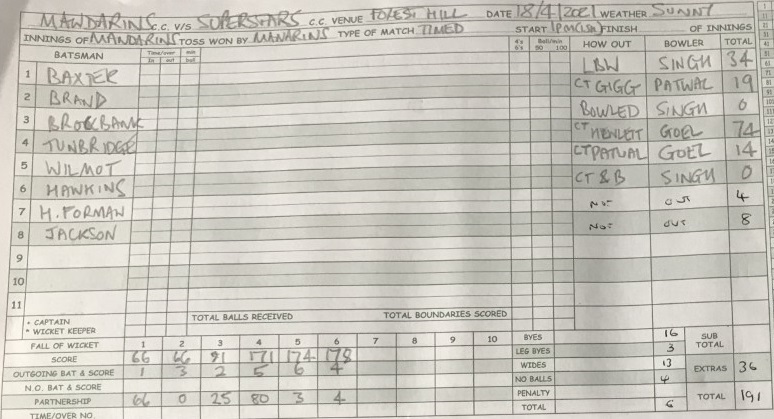 MANDARINS C.C. V/S SUPERSTARS C.C. VENUE FOLESI HILL DATE 18/4/2021 WEATHER SUNNY
INNINGS OF MANDARINS TOSS WON BY MANARINS TYPE OF MATCH TIMED START 1PM FINISH OF INNINGS
BATSMAN Time/over in out min ball 4's 6's Ball/min 50 100 HOW OUT BOWLER TOTAL
1 BAXTER LBW SINGH 34
2 BRAND CT GIGG PATWAL 19
3 BROCBANK BOWLED SINGH 0
4 TUNBRIDGE CT HEWLETT GOEL 74
5 WILMOT CT PATWAL GOEL 14
6 HAWKINS CT & B SINGH 0
7 H. FORMAN NOT OUT 4
8 JACKSON NOT OUT 8
9
10
11
* CAPTAIN
* WICKET KEEPER
TOTAL BALLS RECEIVED TOTAL BOUNDARIES SCORED
FALL OF WICKET 1 2 3 4 5 6 7 8 9 10 BYES 16 SUB TOTAL
SCORE 66 66 91 171 174 178 LEG BYES 3
OUTGOING BAT & SCORE 1 3 2 5 6 4 WIDES 13 EXTRAS 36
N.O. BAT & SCORE NO BALLS 4
PARTNERSHIP 66 0 25 80 3 4 PENALTY TOTAL 191
TIME/OVER NO. TOTAL 6